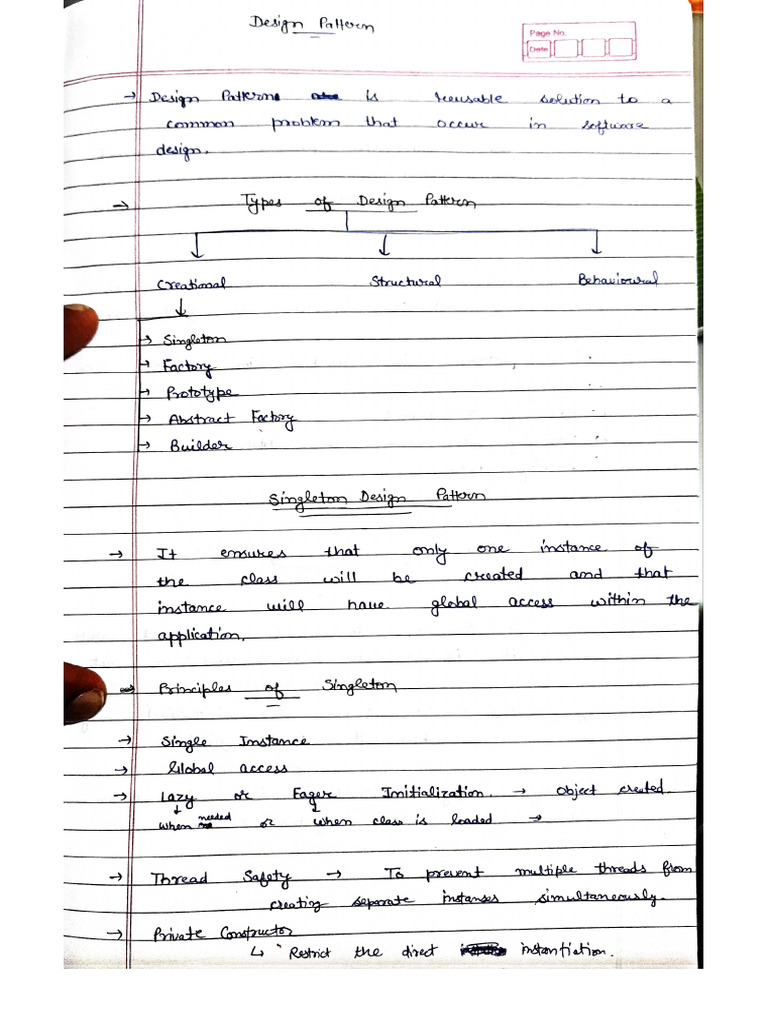 Design Pattern
Page No.
Date
→ Design Pattern is reusable solution to a
common problem that occur in software
design.
→ Types of Design Pattern
Creational Structural Behavioural
→ Singleton
→ Factory
→ Prototype
→ Abstract Factory
→ Builder
Singleton Design Pattern
→ It ensures that only one instance of
the class will be created and that
instance will have global access within the
application.
→ Principles of Singleton
→ Single Instance
→ Global access
→ Lazy or Eager Initialization → Object created
when needed or when class is loaded →
→ Thread Safety → To prevent multiple threads from
creating separate instanses simultaneously.
→ Private Constructor
↳ Restrict the direct instantiation.